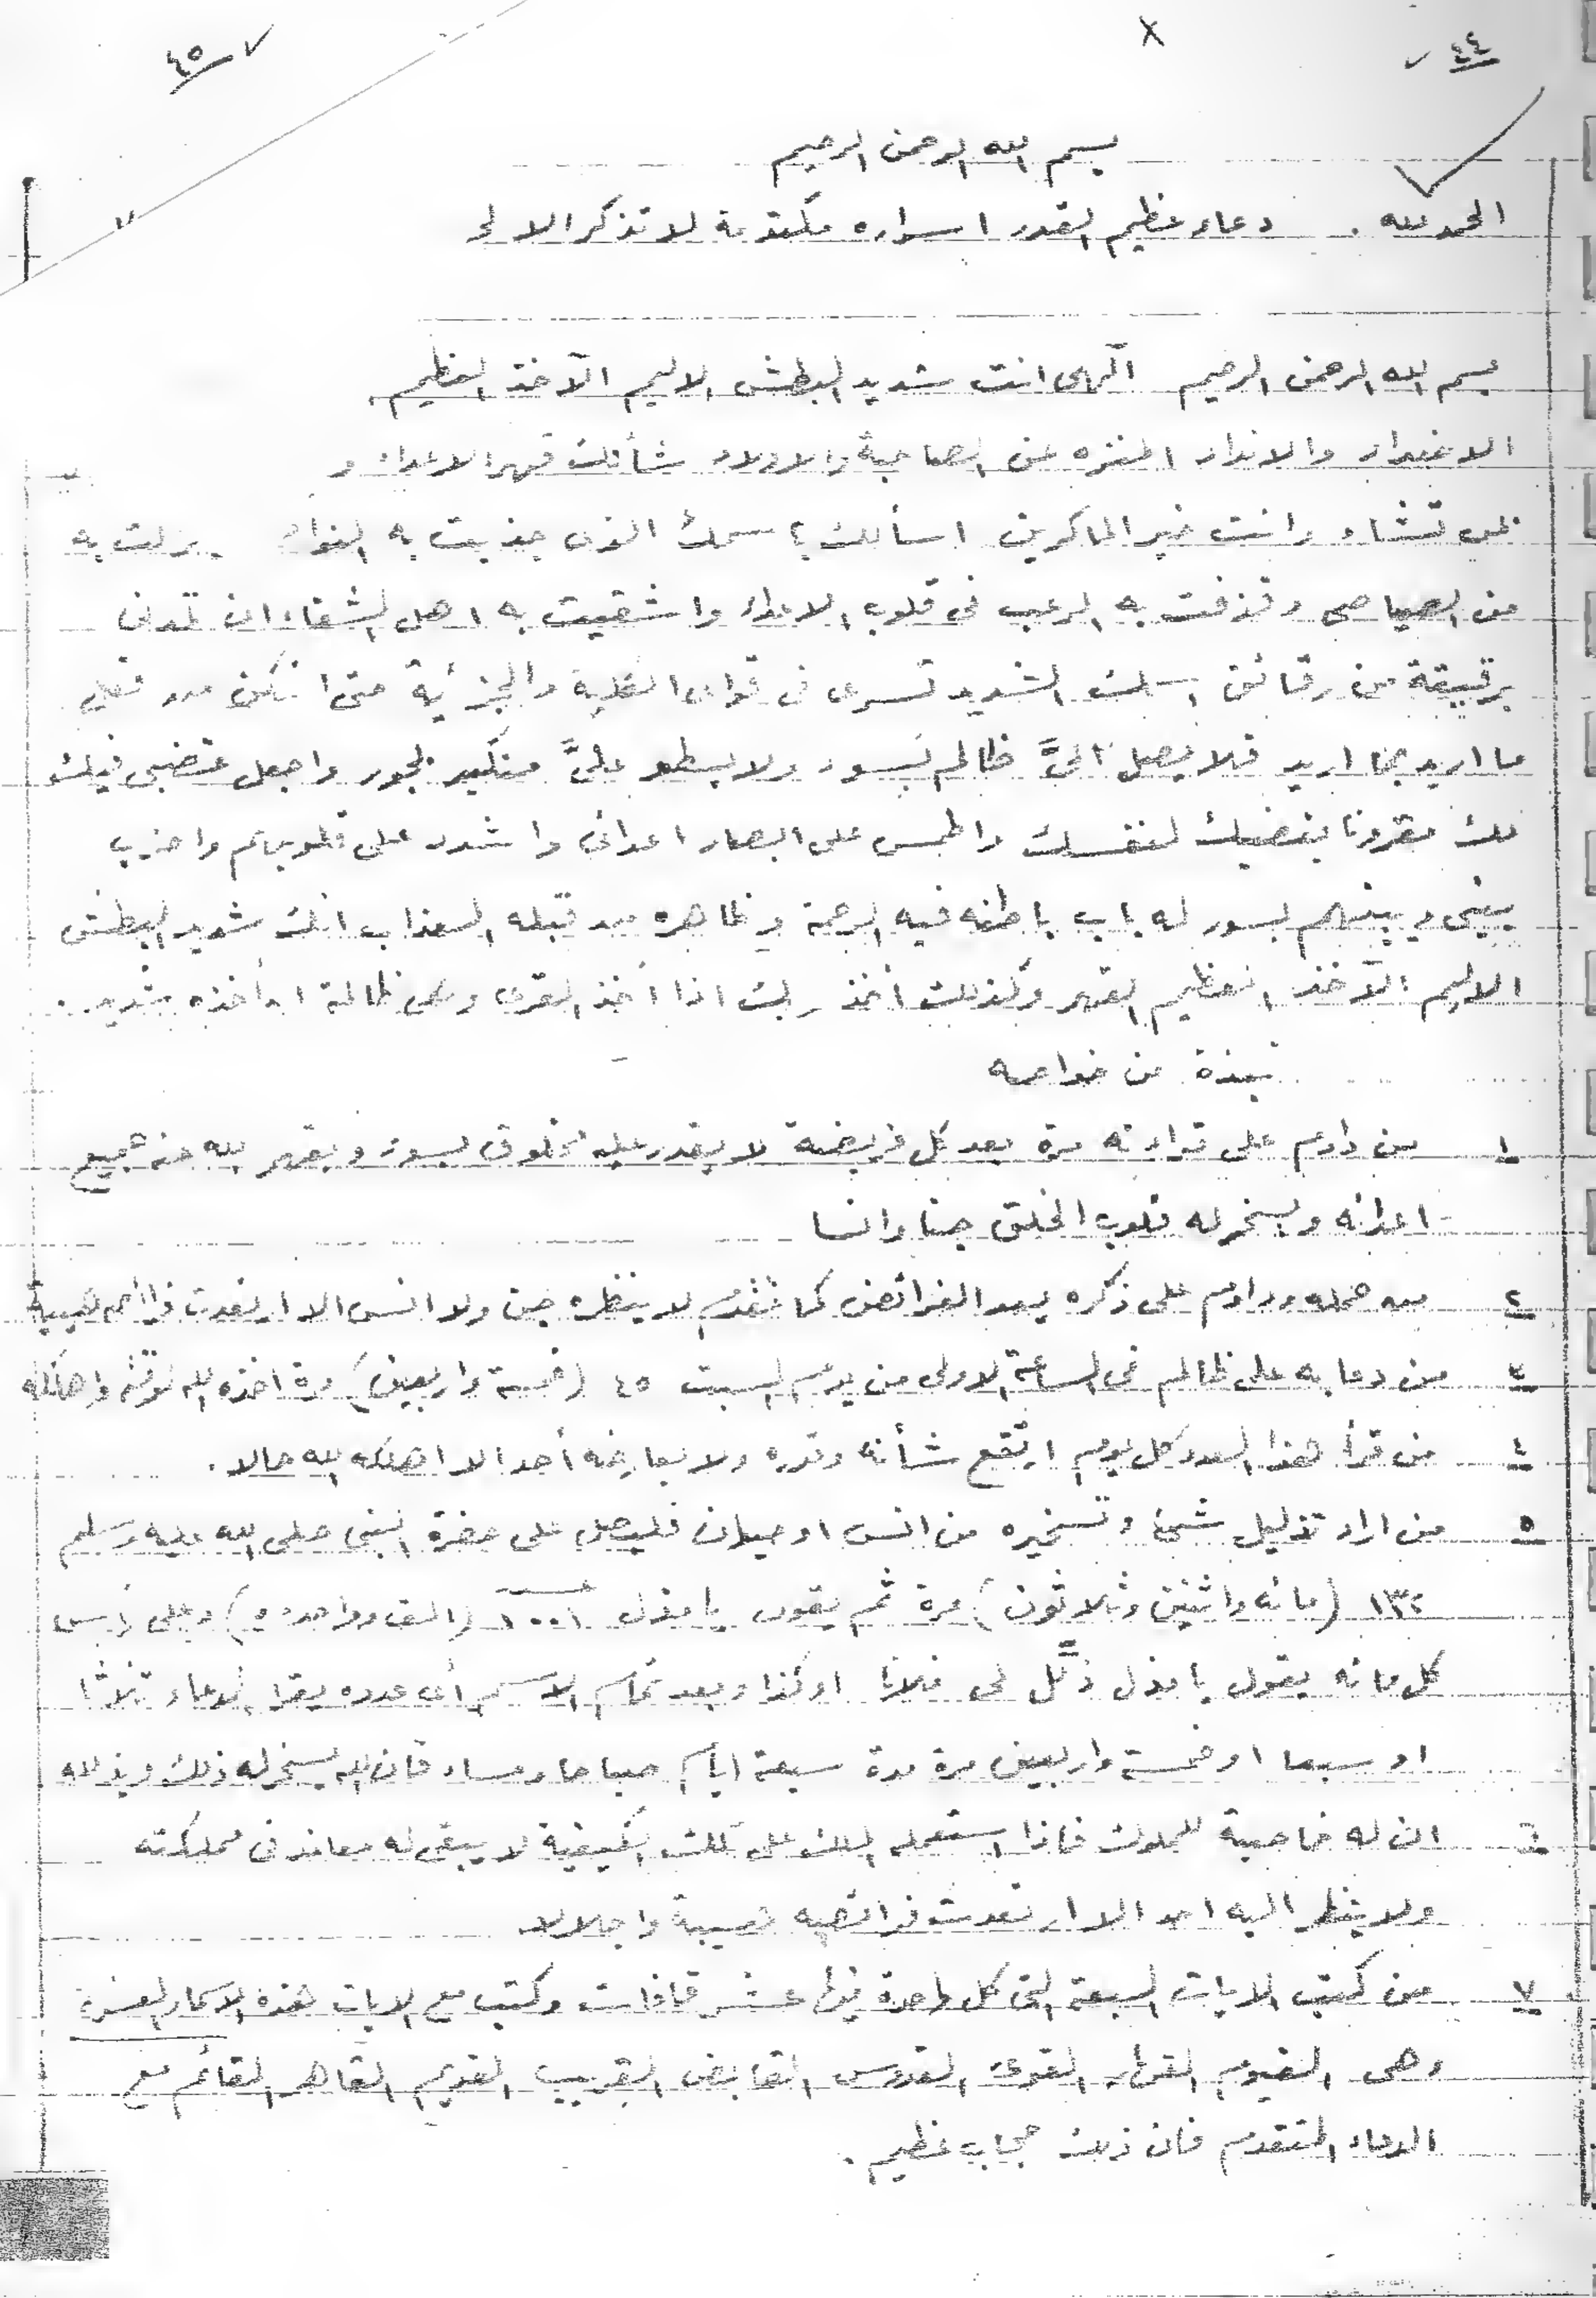 ٤٤
٤٥
بسم الله الرحمن الرحيم
الحمد لله . دعاء عظيم القدر اسراره مكتومة لا تذكر الا لا
بسم الله الرحمن الرحيم الٓهى انت شديد البطش الاليم الآخذ العظيم
والانداد المنزه عن الصاحبة والاولاد شأنك قهر الاعداء و
تشاء وانت خير الماكرين اسألك باسمك الذى جذبت به النواصى به
من الصياصى وقذفت به الرعب فى قلوب الاعداء واشقيت به اهل الشقاء ان تمدنى
برقيقة من رقائق اسمك الشديد تسرى فى قواى الكلية والجزئية حتى اتمكن من فعل
ما اريد بما اريد فلا يصل الىَّ ظالم بسوء ولا يسطو علىَّ متكبر بجور واجعل غضبى فيك
لك مقرونا بغضبك لنفسك واطمس على ابصار اعدائى واشدد على قلوبهم واضرب
بينى وبينهم بسور له باب باطنه فيه الرحمة وظاهره من قبله العذاب انك شديد البطش
الاليم الآخذ العظيم القهر وكذلك أخذ ربك اذا أخذ القرى وهى ظالمة ان أخذه شديد .
نبذة من خواصه
١ من داوم على قراءته مرة بعد كل فريضة لا يقدر عليه مخلوق بسوء ويقهر الله عنه جميع
اعدائه ويسخر له قلوب الخلق جنا وانسا
٢ من حمله وداوم على ذكره بعد الفرائض كما تقدم لا ينظره جن ولا انس الا ارتعدت فرائصه هيبة
٣ من دعا به على ظالم فى الساعة الاولى من يوم السبت ٤٥ (خمسة واربعين) مرة اخذه الله لوقته واهلكه
٤ من قرأ هذا العدد كل يوم ارتفع شأنه وقدره ولا يعارضه أحد الا اهلكه الله حالا .
٥ من اراد تذليل شئ وتسخيره من انس او حيوان فليصل على حضرة النبى صلى الله عليه وسلم
١٣٢ (مائه واثنين وثلاثون) مرة ثم يقول يا مذل ١٠٠١ (الف وواحده) وعلى رأس
كل مائه يقول يا مذل ذلَّل لى فلانا او كذا وبعد تمام الاسم أى عدده يقرا الدعاء ثلاثا
او سبعا او خمسة واربعين مرة مدة سبعة ايام صباحا ومساء فان الله يسخر له ذلك ويذلله
٦ ان له خاصية للملوك فاذا استعمله الملك على تلك الكيفية لا يبقى له معاند فى مملكته
ولا ينظر اليه احد الا ارتعدت فرائصه هيبة واجلالا
٧ من كتب الايات السبعة التى كل واحدة فيها عشر قافات وكتب مع الايات هذه الاسماء العشرة
وهى القيوم القوى القدوس القابض القريب القديم القاهر القائم مع
الدعاء المتقدم فان ذلك حجاب عظيم .